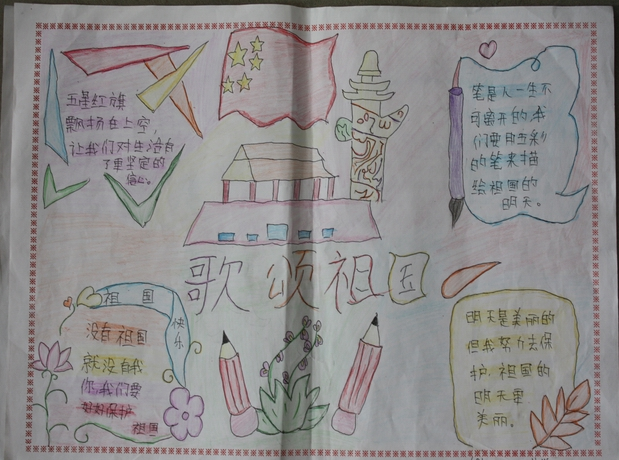 五星红旗
飘扬在上空，
让我们对生活有
了更坚定的
信心。
笔是人一生不
可离开的，
们要用五彩
的笔来描
绘祖国的
明天。
歌颂祖国
祖国
快乐
没有祖国
就没有我
你我们要
好好保护
祖国
明天是美丽的
但我努力去保
护，祖国的
明天更
美丽。